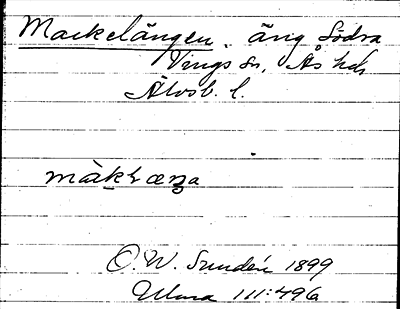 Mackelängen, äng Södra
Vings sn, Ås hd,
Älvsb. l.
O. W. Sundén 1899
Ulma 111:496